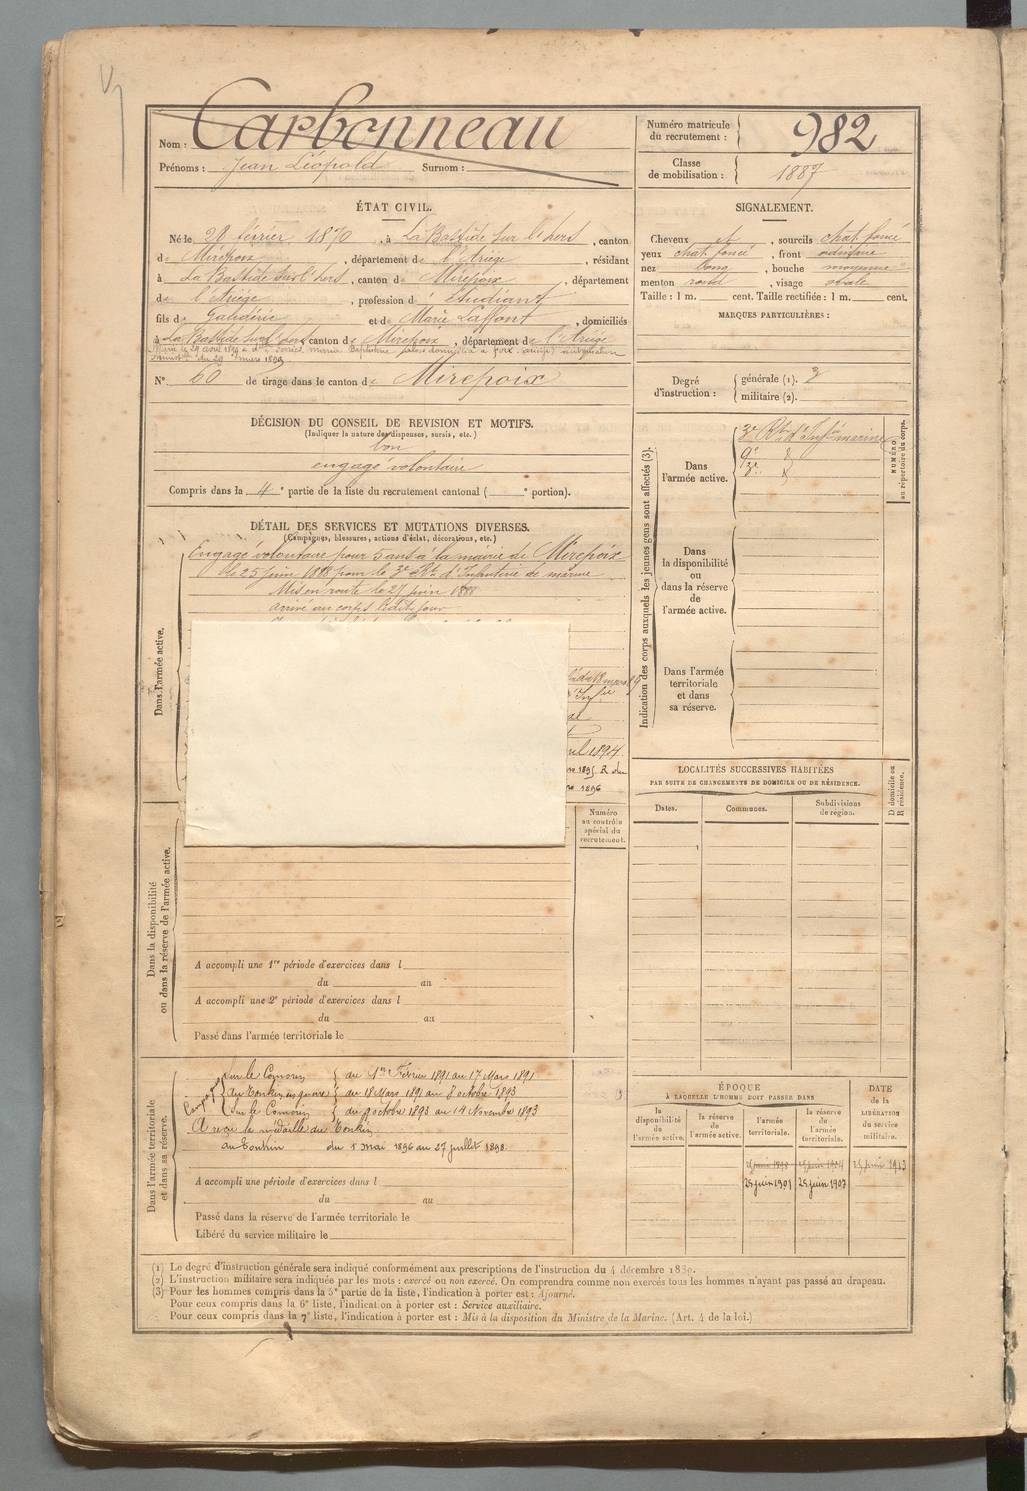 Nom : Carbonneau
Prénoms : Jean Léopold Surnom :
Numéro matricule du recrutement : 982
Classe de mobilisation : 1887
ÉTAT CIVIL.
Né le 20 février 1870, à La Bastide sur l'hers, canton
de Mirepoix, département de l'Ariège, résidant
à La Bastide sur l'hers, canton de Mirepoix, département
de l'Ariège, profession d'étudiant
fils de Galdérie et de Marie Laffont, domiciliés
à La Bastide sur l'hers canton de Mirepoix, département de l'Ariège
Marié le 29 avril 1899 à
du 29 mars 1899
N° 60 de tirage dans le canton de Mirepoix
SIGNALEMENT.
Cheveux et, sourcils chat. foncé
yeux chat. foncé, front ordinaire
nez long, bouche moyenne
menton rond, visage ovale
Taille : 1 m. cent. Taille rectifiée : 1 m. cent.
MARQUES PARTICULIÈRES :
Degré d'instruction : générale (1). 3
militaire (2).
DÉCISION DU CONSEIL DE REVISION ET MOTIFS.
(Indiquer la nature des dispenses, sursis, etc.)
bon
engagé volontaire
Compris dans la 4e partie de la liste du recrutement cantonal ( e portion).
DÉTAIL DES SERVICES ET MUTATIONS DIVERSES.
(Campagnes, blessures, actions d'éclat, décorations, etc.)
Dans l'armée active.
Engagé volontaire pour 5 ans à la mairie de Mirepoix
le 25 juin 1888 pour le 3e Rt d'Infanterie de marine
Mis en route le 25 juin 1888
arrivé au corps ledit jour
mars
Infie
1894.
1895. R du
1896
Indication des corps auxquels les jeunes gens sont affectés (3).
Dans l'armée active.
3e Rt d'Infie marine
9e
Dans la disponibilité ou dans la réserve de l'armée active.
Dans l'armée territoriale et dans sa réserve.
NUMÉRO au répertoire du corps.
LOCALITÉS SUCCESSIVES HABITÉES
PAR SUITE DE CHANGEMENTS DE DOMICILE OU DE RÉSIDENCE.
Dates. Communes. Subdivisions de région.
D domicile ou R résidence.
Numéro au contrôle spécial du recrutement.
Dans la disponibilité ou dans la réserve de l'armée active.
A accompli une 1re période d'exercices dans l
du au
A accompli une 2e période d'exercices dans l
du au
Passé dans l'armée territoriale le
Dans l'armée territoriale et dans sa réserve.
sur le Comorin du 1er Février 1891 au 17 Mars 1891
au Tonkin, en guerre du 18 Mars 1891 au 8 octobre 1893
Sur le Comorin du 9 octobre 1893 au 19 Novembre 1893
A reçu la médaille du Tonkin
au Tonkin du 1 mai 1896 au 27 juillet 1898.
A accompli une période d'exercices dans l
du au
Passé dans la réserve de l'armée territoriale le
Libéré du service militaire le
ÉPOQUE
À LAQUELLE L'HOMME DOIT PASSER DANS
la disponibilité de l'armée active. la réserve de l'armée active. l'armée territoriale. la réserve de l'armée territoriale.
DATE de la LIBÉRATION du service militaire.
25 juin 1913
25 juin 1901 25 juin 1907
(1) Le degré d'instruction générale sera indiqué conformément aux prescriptions de l'instruction du 4 décembre 1889.
(2) L'instruction militaire sera indiquée par les mots : exercé ou non exercé. On comprendra comme non exercés tous les hommes n'ayant pas passé au drapeau.
(3) Pour les hommes compris dans la 5e partie de la liste, l'indication à porter est : Ajourné.
Pour ceux compris dans la 6e liste, l'indication à porter est : Service auxiliaire.
Pour ceux compris dans la 7e liste, l'indication à porter est : Mis à la disposition du Ministre de la Marine. (Art. 4 de la loi.)